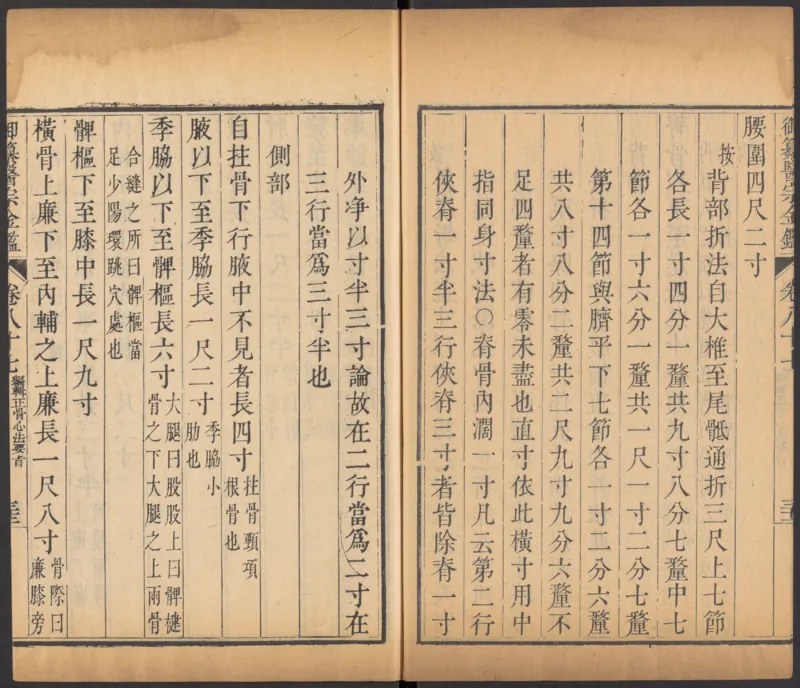 腰圍四尺二寸
按背部折法自大椎至尾骶通折三尺上七節
各長一寸四分一釐共九寸八分七釐中七
節各一寸六分一釐共一尺一寸二分七釐
第十四節與臍平下七節各一寸二分六釐
共八寸八分二釐共二尺九寸九分六釐不
足四釐者有零未盡也直寸依此橫寸用中
指同身寸法〇脊骨內濶一寸凡云第二行
俠脊一寸半三行俠脊三寸者皆除脊一寸
外净以寸半三寸論故在二行當爲二寸在
三行當爲三寸半也
側部
自拄骨下行腋中不見者長四寸拄骨頸項根骨也
腋以下至季脇長一尺二寸季脇小肋也
季脇以下至髀樞長六寸大腿曰股股上曰髀楗骨之下大腿之上兩骨
合縫之所曰髀樞當足少陽環跳穴處也
髀樞下至膝中長一尺九寸
橫骨上廉下至內輔之上廉長一尺八寸骨際曰廉膝旁
御纂醫宗金鑑 卷八十七 編輯正骨心法要旨